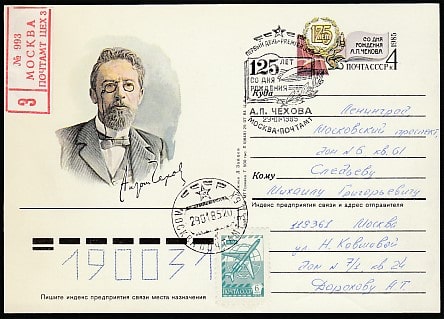 № 993
МОСКВА
ПОЧТАМТ ЦЕХ 3
З
ПЕРВЫЙ ДЕНЬ
125 ЛЕТ
СО ДНЯ
РОЖДЕНИЯ
А.П. ЧЕХОВА
29-01-1985
МОСКВА-ПОЧТАМТ
125
СО ДНЯ
РОЖДЕНИЯ
А.П. ЧЕХОВА
1985
ПОЧТА СССР 4
Куда
Ленинград
Московский проспект,
дом № 6, кв. 61
Кому Следьеву
Михаилу Григорьевичу
Индекс предприятия связи и адрес отправителя
113361 Москва
ул. Н. Ковшовой
дом 7/1 кв 24
Дорохову А.Т.
Антон Чехов
СССР
29018520
190031
ПОЧТА СССР 6
Пишите индекс предприятия связи места назначения